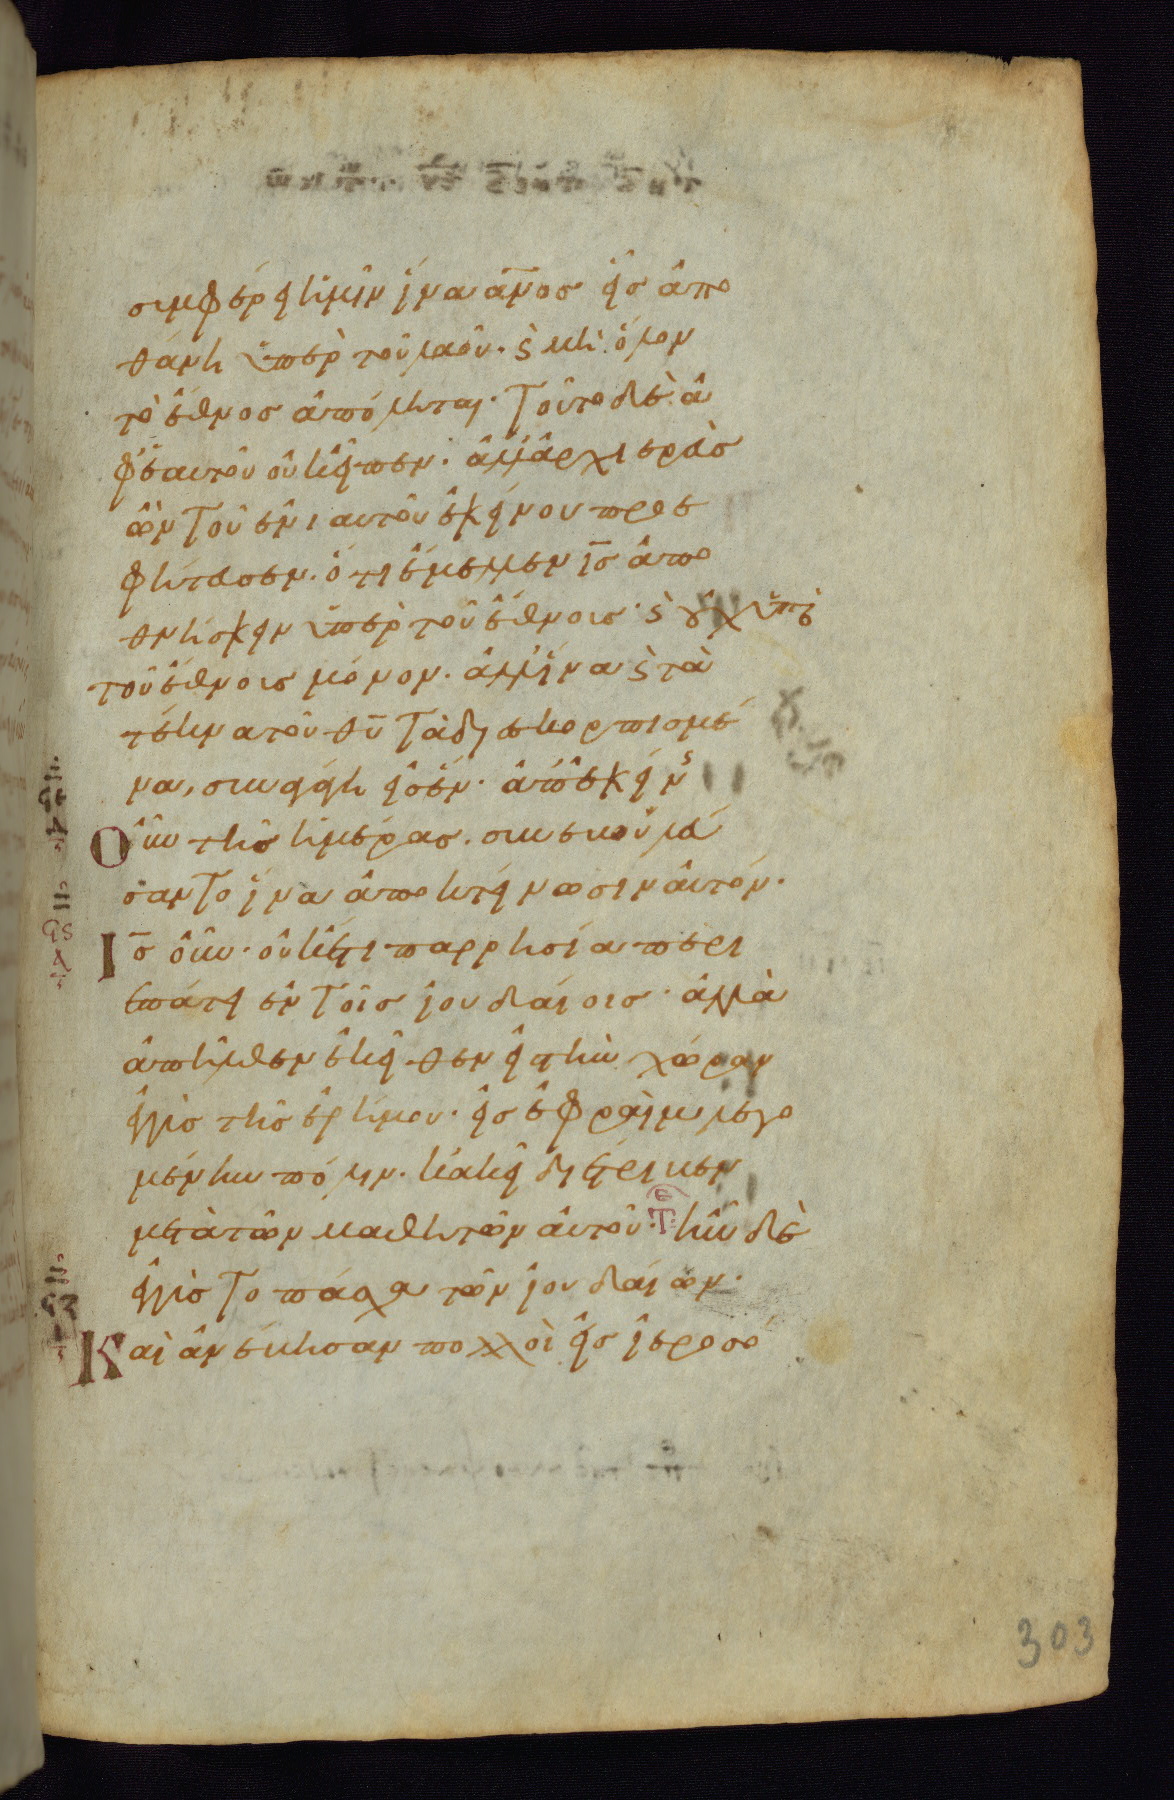 συμφέρει ἡμῖν ἵνα ἄν̅ο̅σ̅ εἷσ ἀπο
θάνη ὑπὲρ τοῦ λαοῦ· ϗ μὴ ὅλον
τὸ ἔθνοσ ἀπόληται· Τοῦτο δὲ ἀ
φ' ἑαυτοῦ οὐκ εἶπεν· ἀλλ' ἀρχιερεὺσ
ὢν τοῦ ἐνιαυτοῦ ἐκείνου προε
φήτευσεν· ὅτι ἔμελλεν ι̅σ̅ ἀπο
θνήσκειν ὑπὲρ τοῦ ἔθνουσ· ϗ οὐχ ὑπὲρ
τοῦ ἔθνουσ μόνον· ἀλλ' ἵνα ϗ τὰ
τέκνα τοῦ θ̅υ̅ τὰ διεσκορπισμέ
να, συναγάγη εἰσ ἕν· ἀπ' ἐκείνησ
Οὖν τῆσ ἡμέρασ· συνεβουλεύ
σαντο ἵνα ἀποκτείνωσιν αὐτόν·
Ι̅σ̅ οὖν· οὐκέτι παρρησία περι
επάτει ἐν τοῖσ ἰουδαίοισ· ἀλλὰ
ἀπῆλθεν ἐκεῖθεν εἰσ τὴν χώραν
ἐγγὺσ τῆσ ἐρήμου· εἰσ ἐφραὶμ λεγο
μένην πόλιν· κἀκεῖ διέτριβεν
μετὰ τῶν μαθητῶν αὐτοῦ· ἦν δὲ
ἐγγὺσ τὸ πάσχα τῶν ἰουδαίων·
Καὶ ἀνέβησαν πολλοὶ εἰσ ἱεροσό
303